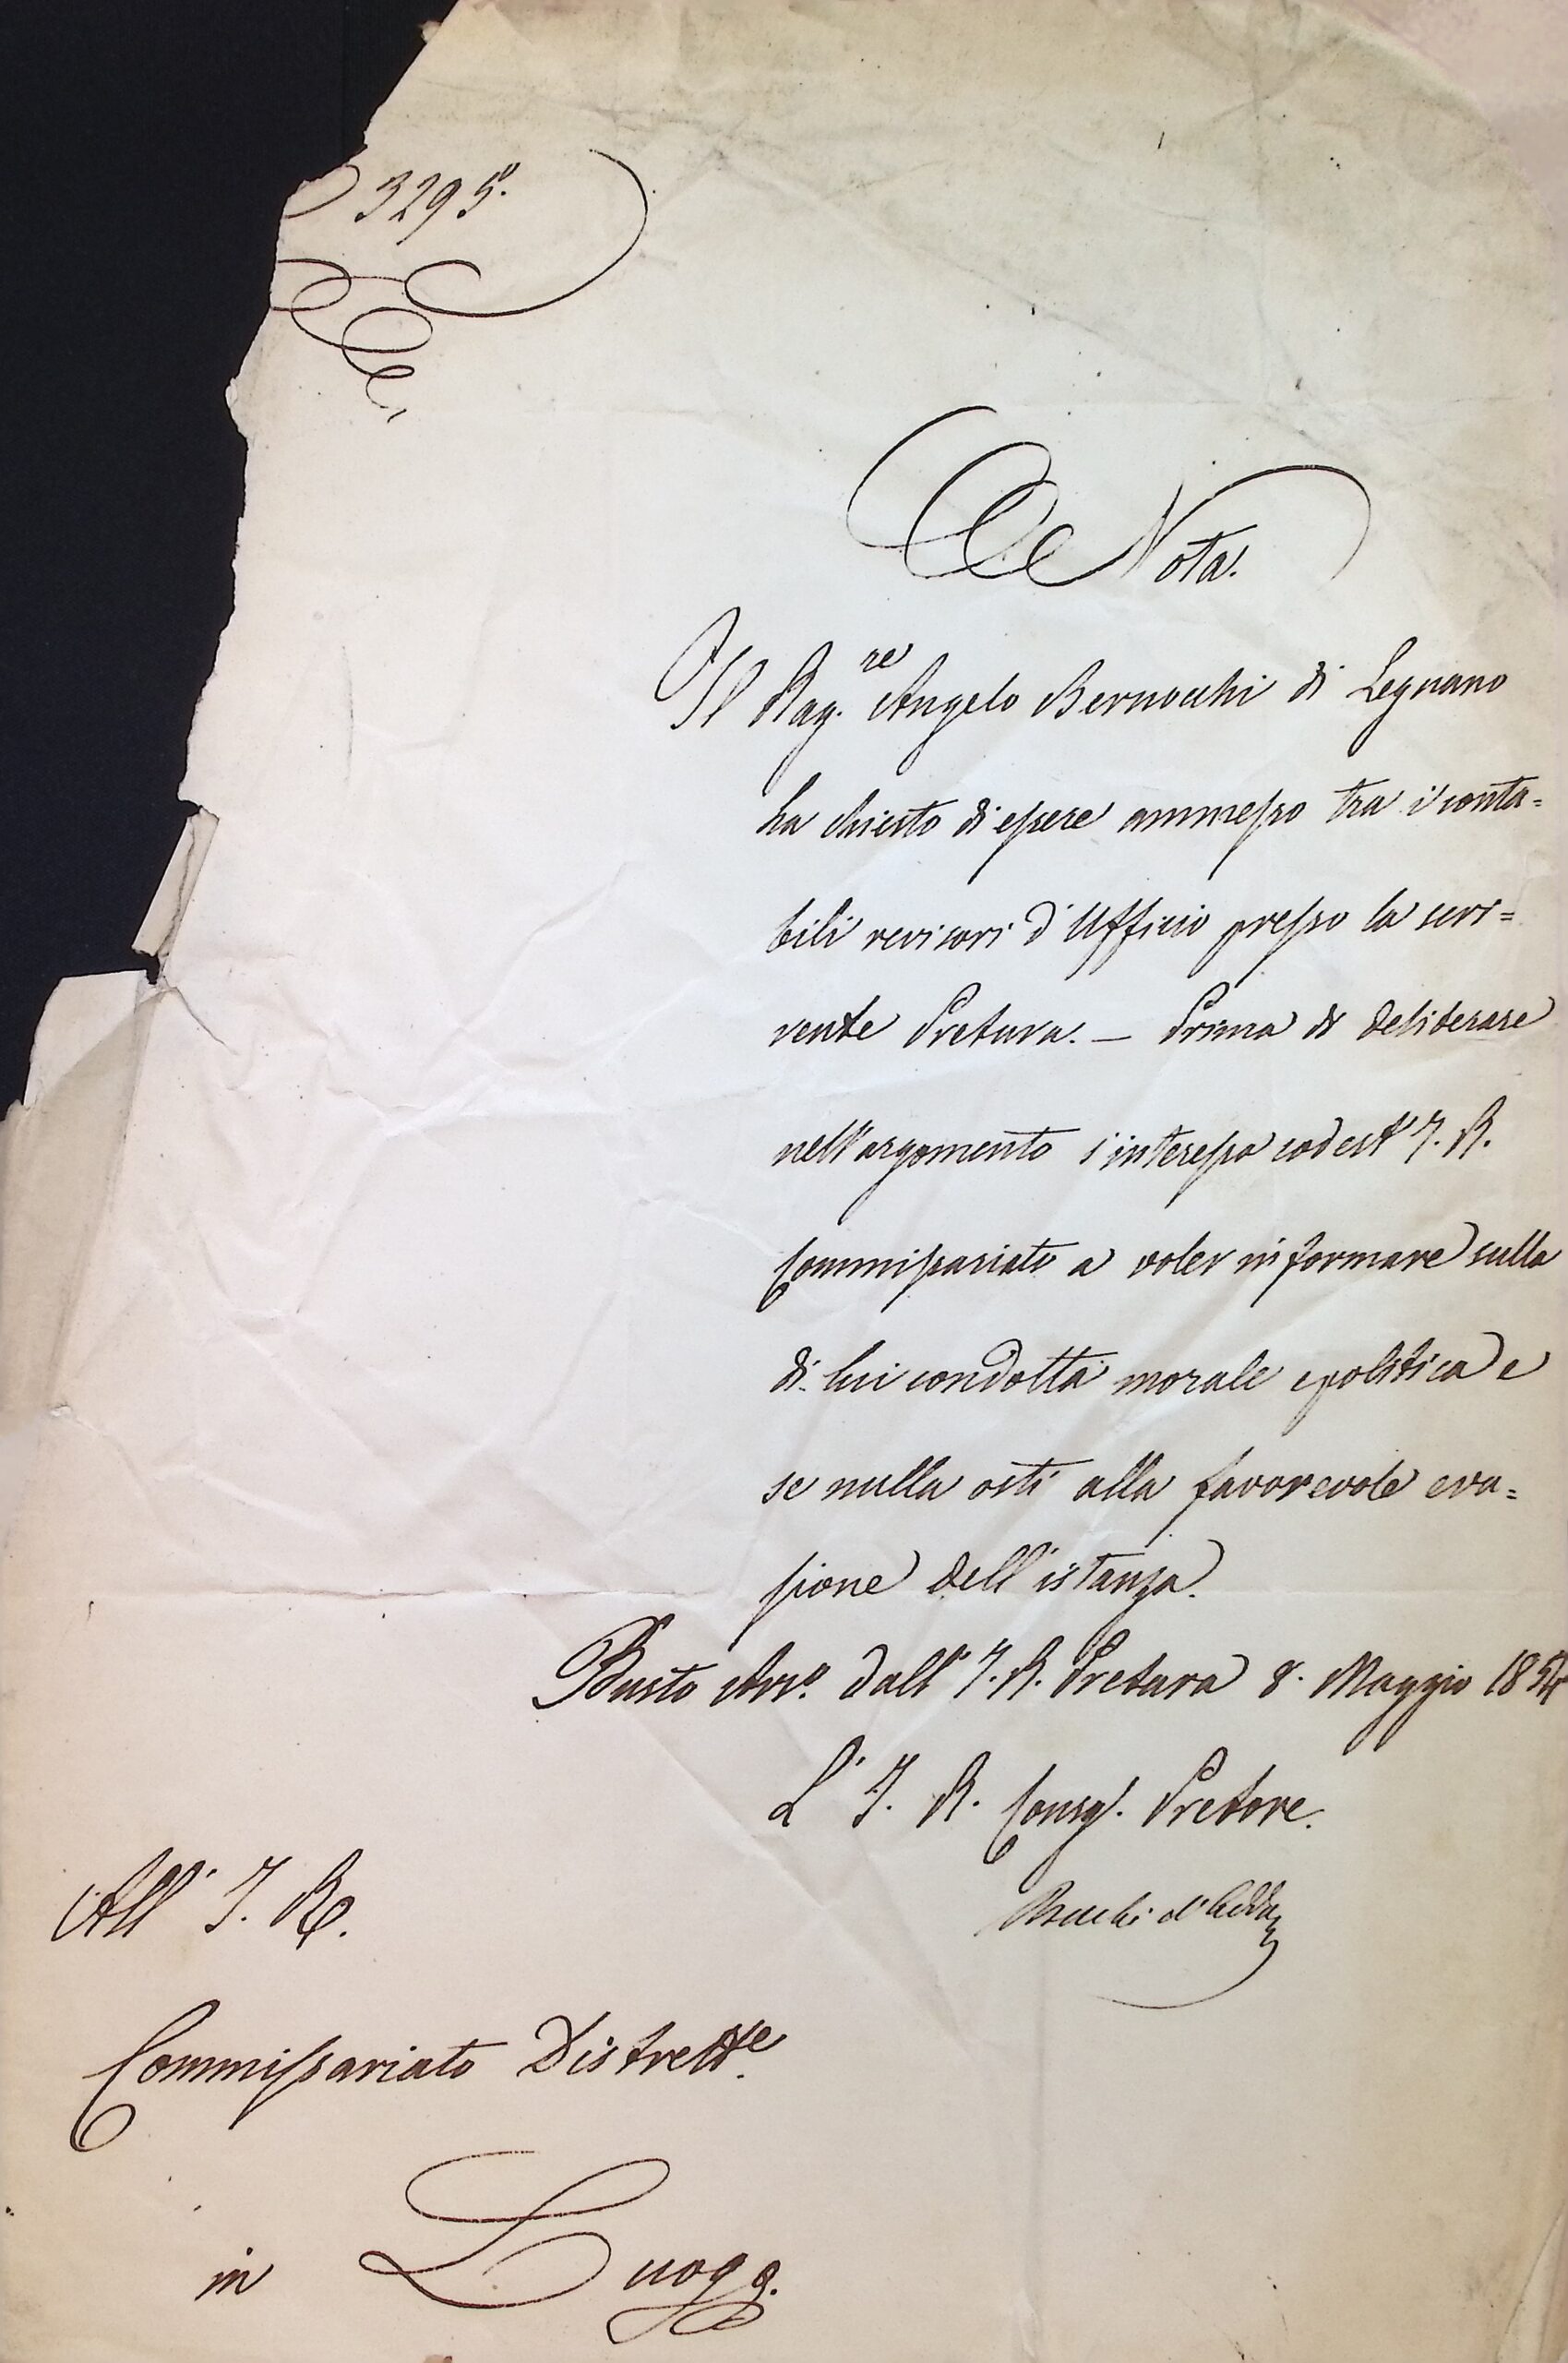 3295.
Nota.
Il Rag.re Angelo Bernocchi di Legnano
ha chiesto di essere ammesso tra i conta=
bili revisori d'Ufficio presso la scri=
vente Pretura. — Prima di deliberare
nell'argomento s'interessa codest'I. R.
Commissariato a voler informare sulla
di lui condotta morale e politica e
se nulla osti alla favorevole eva=
sione dell'istanza.
Busto Arso. dall'I. R. Pretura 8. Maggio 1854
L'I. R. Consigl. Pretore.
All' I. R.
Commissariato Distrette.
in Luogo.